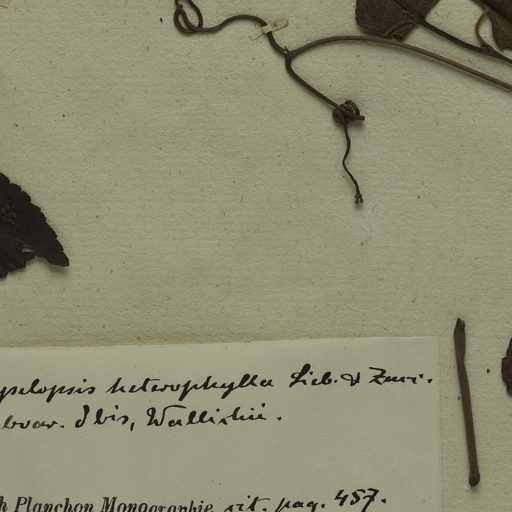 pselopsis heterophylla Sieb. & Zucc.
bvar. δ bis, Wallichii.
h Planchon Monographie vit. pag. 457.